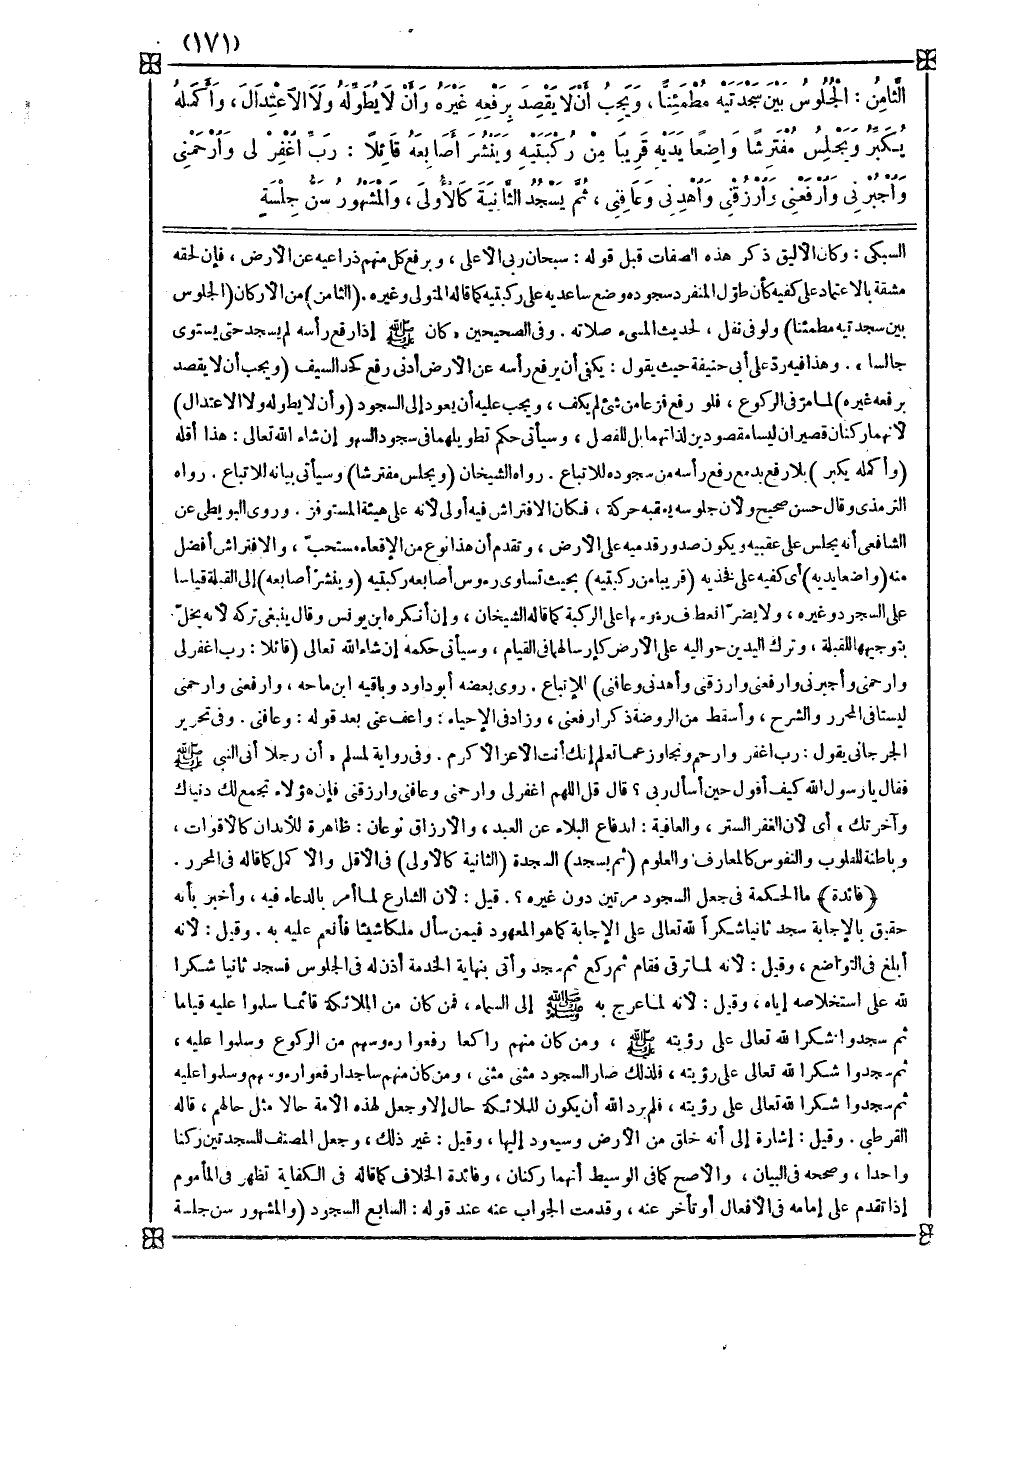 (١٧١)
الثَّامِنُ : الْجُلُوسُ بَيْنَ سَجْدَتَيْهِ مُطْمَئِنًّا ، وَيَجِبُ أَنْ لَا يَقْصِدَ بِرَفْعِهِ غَيْرَهُ وَأَنْ لَا يُطَوِّلَهُ وَلَا الْاعْتِدَالَ ، وَأَكْمَلُهُ
يُكَبِّرُ وَيَجْلِسُ مُفْتَرِشًا وَاضِعًا يَدَيْهِ قَرِيبًا مِنْ رُكْبَتَيْهِ وَيَنْشُرَ أَصَابِعَهُ قَائِلًا : رَبِّ اغْفِرْ لِي وَارْحَمْنِي
وَاجْبُرْنِي وَارْفَعْنِي وَارْزُقْنِي وَاهْدِنِي وَعَافِنِي ، ثُمَّ يَسْجُدُ الثَّانِيَةَ كَالْأُولَى ، وَالْمَشْهُورُ سَنُّ جِلْسَةٍ
السبكى : وكان الأليق ذكر هذه الصفات قبل قوله : سبحان ربى الأعلى ، ويرفع كل منهم ذراعيه عن الأرض ، فإن لحقه
مشقة بالاعتماد على كفيه كأن طوّل المنفرد سجوده وضع ساعديه على ركبتيه كما قاله المتولى وغيره . (الثامن) من الأركان (الجلوس
بين سجدتيه مطمئنا) ولو فى نفل ، لحديث المسىء صلاته . وفى الصحيحين «كان ﷺ إذا رفع رأسه لم يسجد حتى يستوى
جالسا» . وهذا فيه ردّ على أبى حنيفة حيث يقول : يكفى أن يرفع رأسه عن الأرض أدنى رفع كحد السيف (ويجب أن لا يقصد
برفعه غيره) لما مرّ فى الركوع ، فلو رفع فزعا من شئ لم يكف ، ويجب عليه أن يعود إلى السجود (وأن لا يطوله ولا الاعتدال)
لأنهما ركنان قصيران ليسا مقصودين لذاتهما بل للفصل ، وسيأتى حكم تطويلهما فى سجود السهو إن شاء الله تعالى : هذا أقله
(وأكمله يكبر) بلا رفع يد مع رفع رأسه من سجوده للاتباع . رواه الشيخان (ويجلس مفترشا) وسيأتى بيانه للاتباع . رواه
الترمذى وقال حسن صحيح ولأن جلوسه يعقبه حركة ، فكان الافتراش فيه أولى لأنه على هيئة المستوفز . وروى البويطى عن
الشافعى أنه يجلس على عقبيه ويكون صدور قدميه على الأرض ، وتقدم أن هذا نوع من الإقعاء مستحبّ ، والافتراش أفضل
منه (واضعا يديه) أى كفيه على فخذيه (قريبا من ركبتيه) بحيث تساوى رءوس أصابعه ركبتيه (وينشر أصابعه) إلى القبلة قياسا
على السجود وغيره ، ولا يضرّ انعطاف رءوسها على الركبة كما قاله الشيخان ، وإن أنكره ابن يونس وقال ينبغى تركه لأنه يخلّ
بتوجيهها للقبلة ، وترك اليدين حواليه على الأرض كإرسالهما فى القيام ، وسيأتى حكمه إن شاء الله تعالى (قائلا : رب اغفر لى
وارحمنى وأجبرنى وارفعنى وارزقنى وأهدنى وعافنى) للاتباع . روى بعضه أبو داود وباقيه ابن ماجه ، وارفعنى وارحمنى
ليستا فى المحرر والشرح ، وأسقط من الروضة ذكر ارفعنى ، وزاد فى الإحياء : واعف عنى بعد قوله : وعافنى . وفى تحرير
الجرجانى يقول : رب اغفر وارحم وتجاوز عما تعلم إنك أنت الأعز الأكرم . وفى رواية لمسلم «أن رجلا أتى النبى ﷺ
فقال يا رسول الله كيف أقول حين أسأل ربى ؟ قال قل اللهم اغفر لى وارحمنى وعافنى وارزقنى فإن هؤلاء تجمع لك دنياك
وآخرتك» أى لأن الغفر الستر ، والعافية : اندفاع البلاء عن العبد ، والأرزاق نوعان : ظاهرة للأبدان كالأقوات ،
وباطنة للقلوب والنفوس كالمعارف والعلوم (ثم يسجد) السجدة (الثانية كالأولى) فى الأقل والأكمل كما قاله فى المحرر .
﴿فائدة﴾ ما الحكمة فى جعل السجود مرتين دون غيره ؟ . قيل : لأن الشارع لما أمر بالدعاء فيه ، وأخبر بأنه
حقيق بالإجابة سجد ثانيا شكراً لله تعالى على الإجابة كما هو المعهود فيمن سأل ملكا شيئا فأنعم عليه به . وقيل : لأنه
أبلغ فى التواضع ، وقيل : لأنه لما ترقى فقام ثم ركع ثم سجد وأتى بنهاية الخدمة أذن له فى الجلوس فسجد ثانيا شكرا
لله على استخلاصه إياه ، وقيل : لأنه لما عرج به ﷺ إلى السماء ، فمن كان من الملائكة قائما سلموا عليه قياما
ثم سجدوا شكرا لله تعالى على رؤيته ﷺ ، ومن كان منهم راكعا رفعوا رءوسهم من الركوع وسلموا عليه ،
ثم سجدوا شكرا لله تعالى على رؤيته ، فلذلك صار السجود مثنى مثنى ، ومن كان منهم ساجدا رفعوا رءوسهم وسلموا عليه
ثم سجدوا شكرا لله تعالى على رؤيته ، فلم يرد الله أن يكون للملائكة حال إلا وجعل لهذه الأمة حالا مثل حالهم ، قاله
القرطبى . وقيل : إشارة إلى أنه خلق من الأرض وسيعود إليها ، وقيل : غير ذلك ، وجعل المصنف للسجدتين ركنا
واحدا ، وصححه فى البيان ، والأصح كما فى الوسيط أنهما ركنان ، وفائدة الخلاف كما قاله فى الكفاية تظهر فى المأموم
إذا تقدم على إمامه فى الأفعال أو تأخر عنه ، وقدمت الجواب عنه عند قوله : السابع السجود (والمشهور سن جلسة